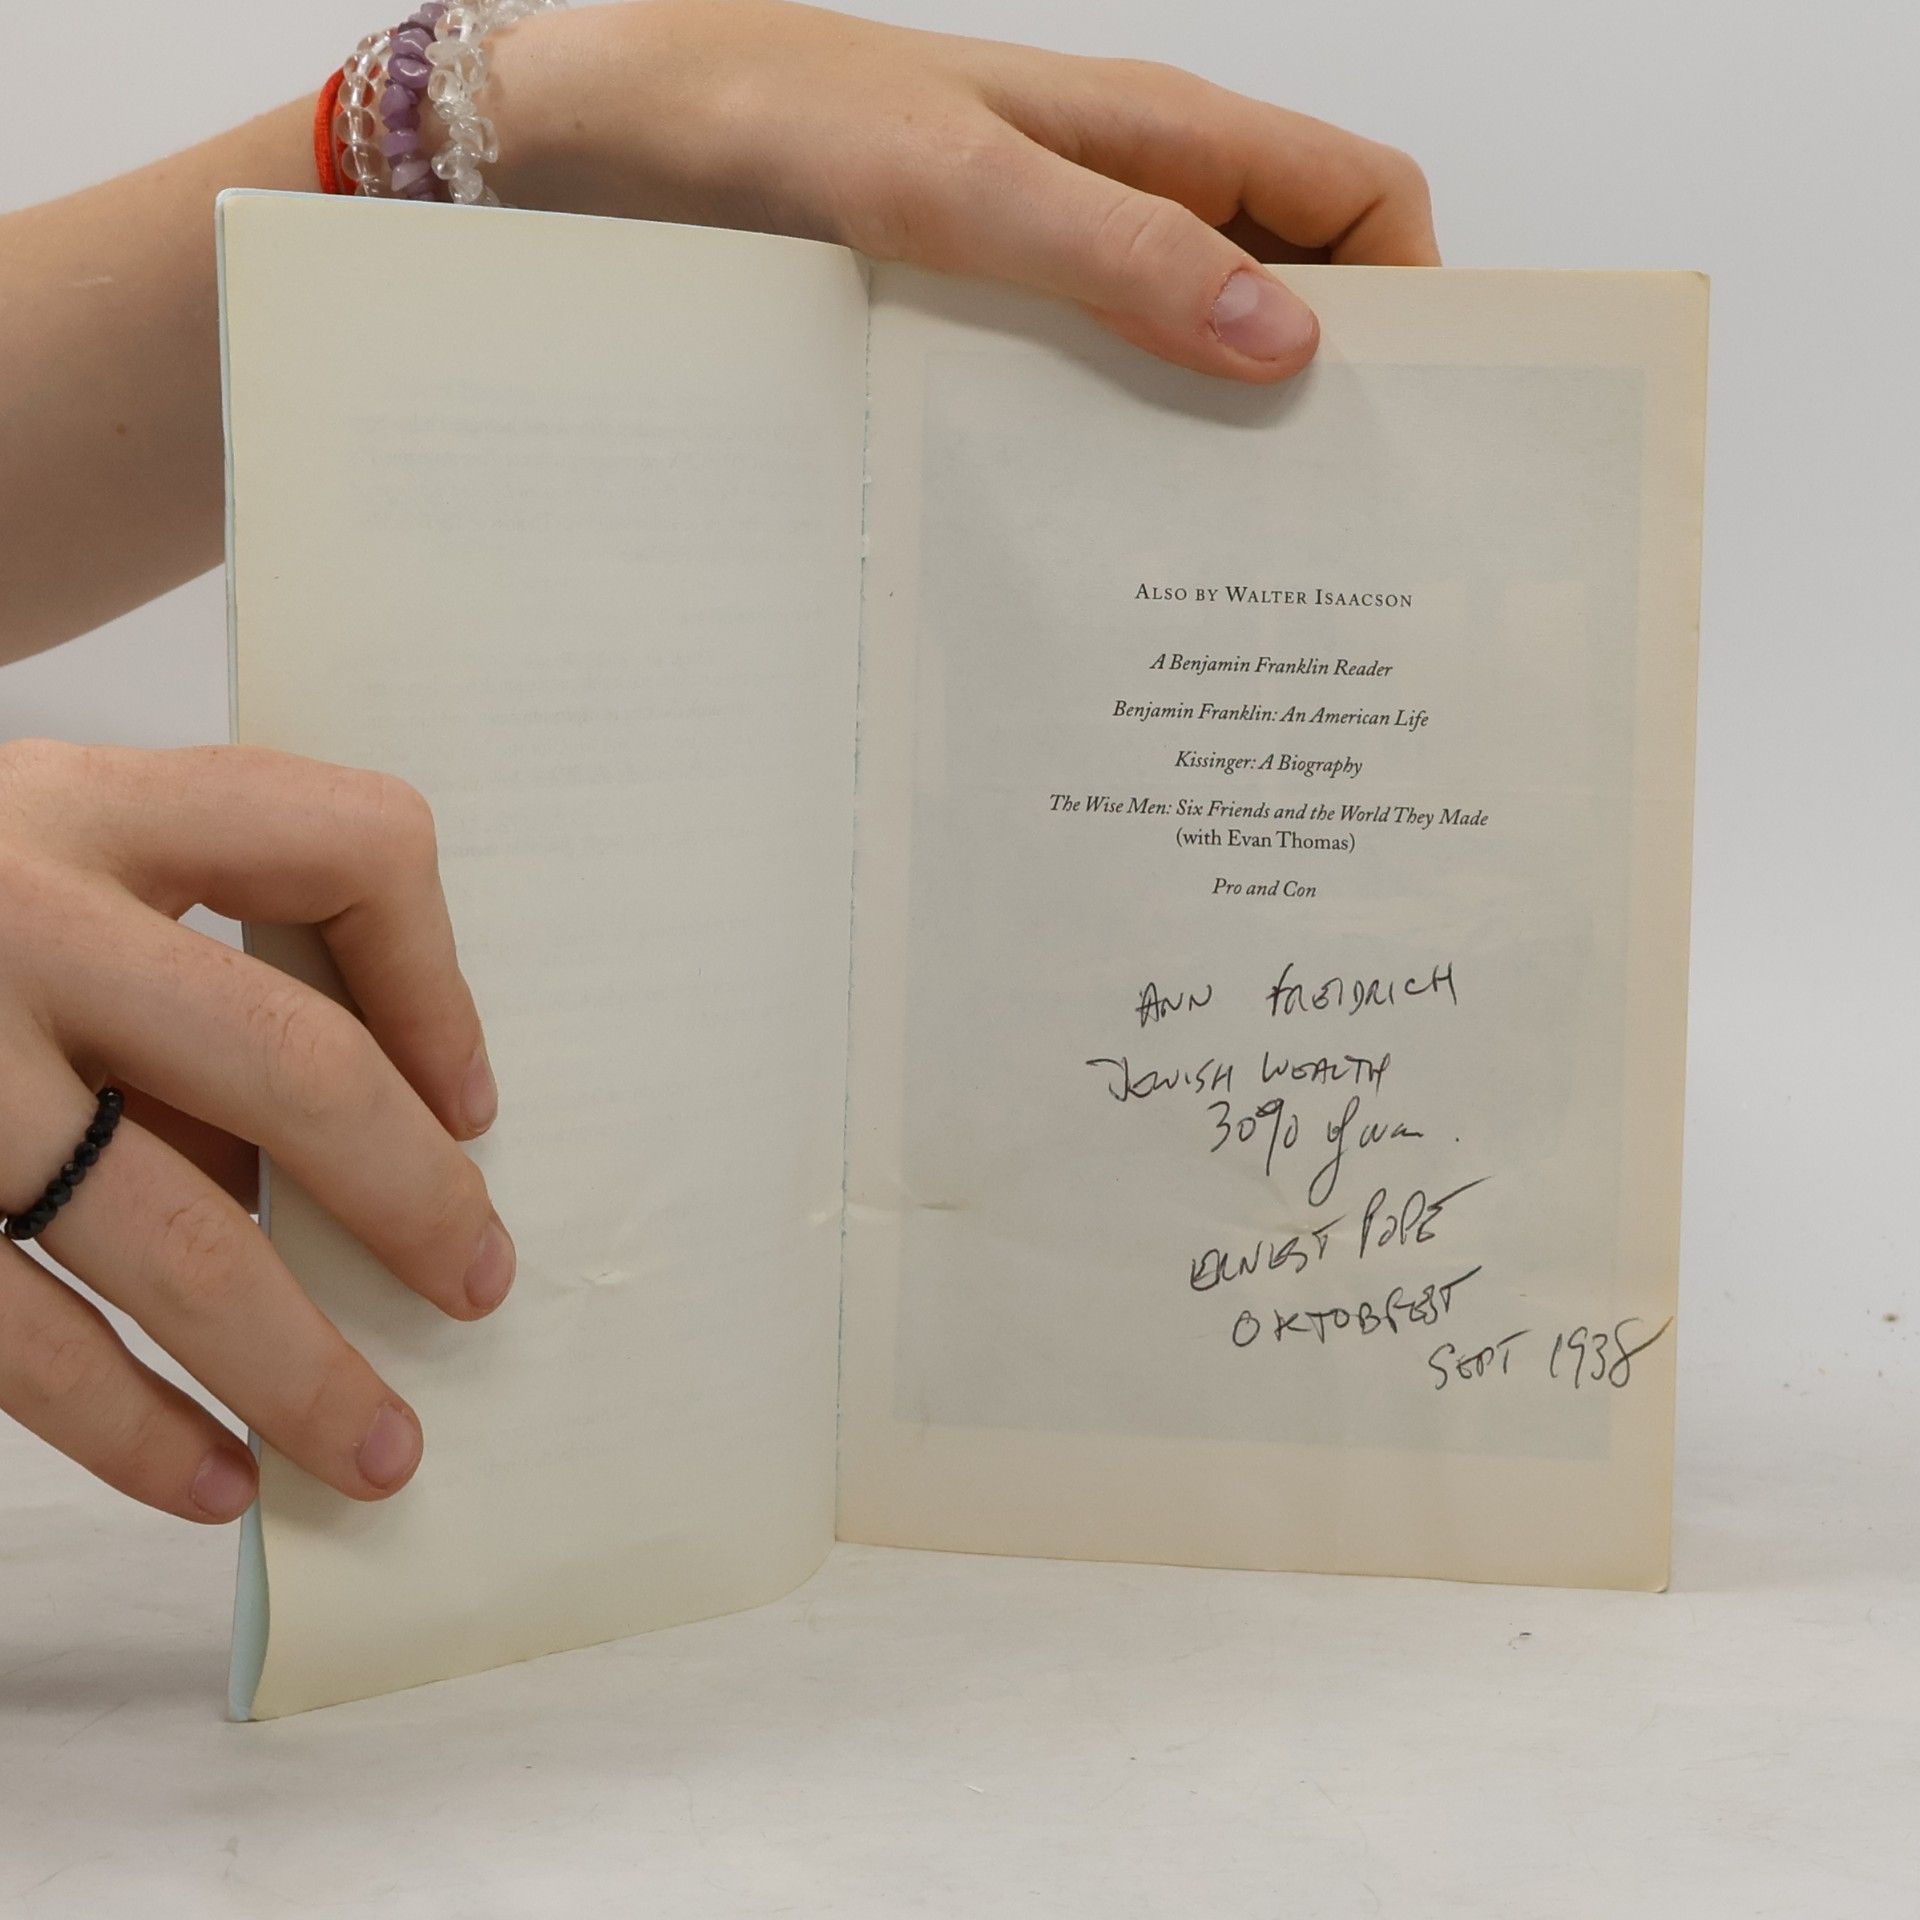 ALSO BY WALTER ISAACSON
A Benjamin Franklin Reader
Benjamin Franklin: An American Life
Kissinger: A Biography
The Wise Men: Six Friends and the World They Made
(with Evan Thomas)
Pro and Con
ANN FREIDRICH
JEWISH WEALTH
30% of war.
ERNEST POPE
OKTOBFEST
SEPT 1938